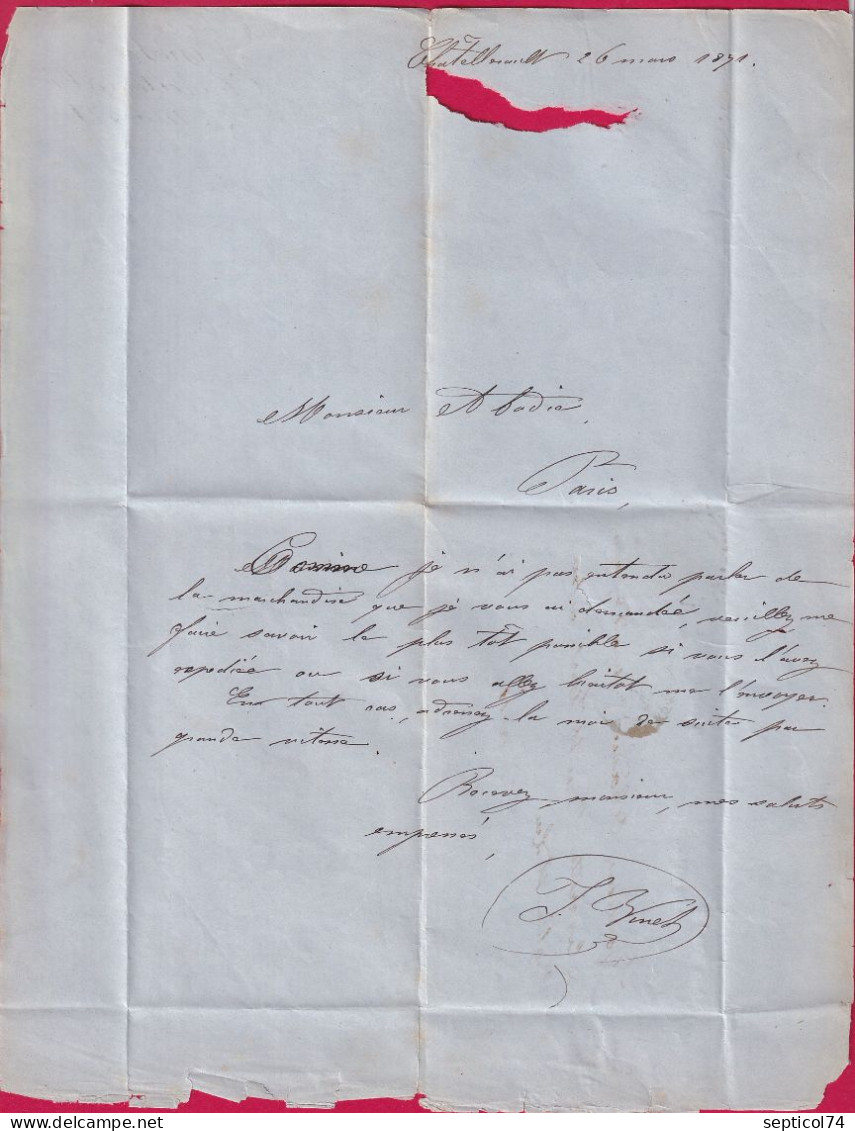 Chatellerault 26 mars 1871.
Monsieur Abadie,
Paris,
je n'ai pas entendu parler de
la marchandise que je vous ai demandée, veuillez me
faire savoir le plus tôt possible si vous l'avez
expediée ou si vous allez bientot me l'envoyer.
En tout cas, adressez-la moi de suite par
grande vitesse.
Recevez, monsieur, mes saluts
empressés,
J. Vinet
SEPTICOL74